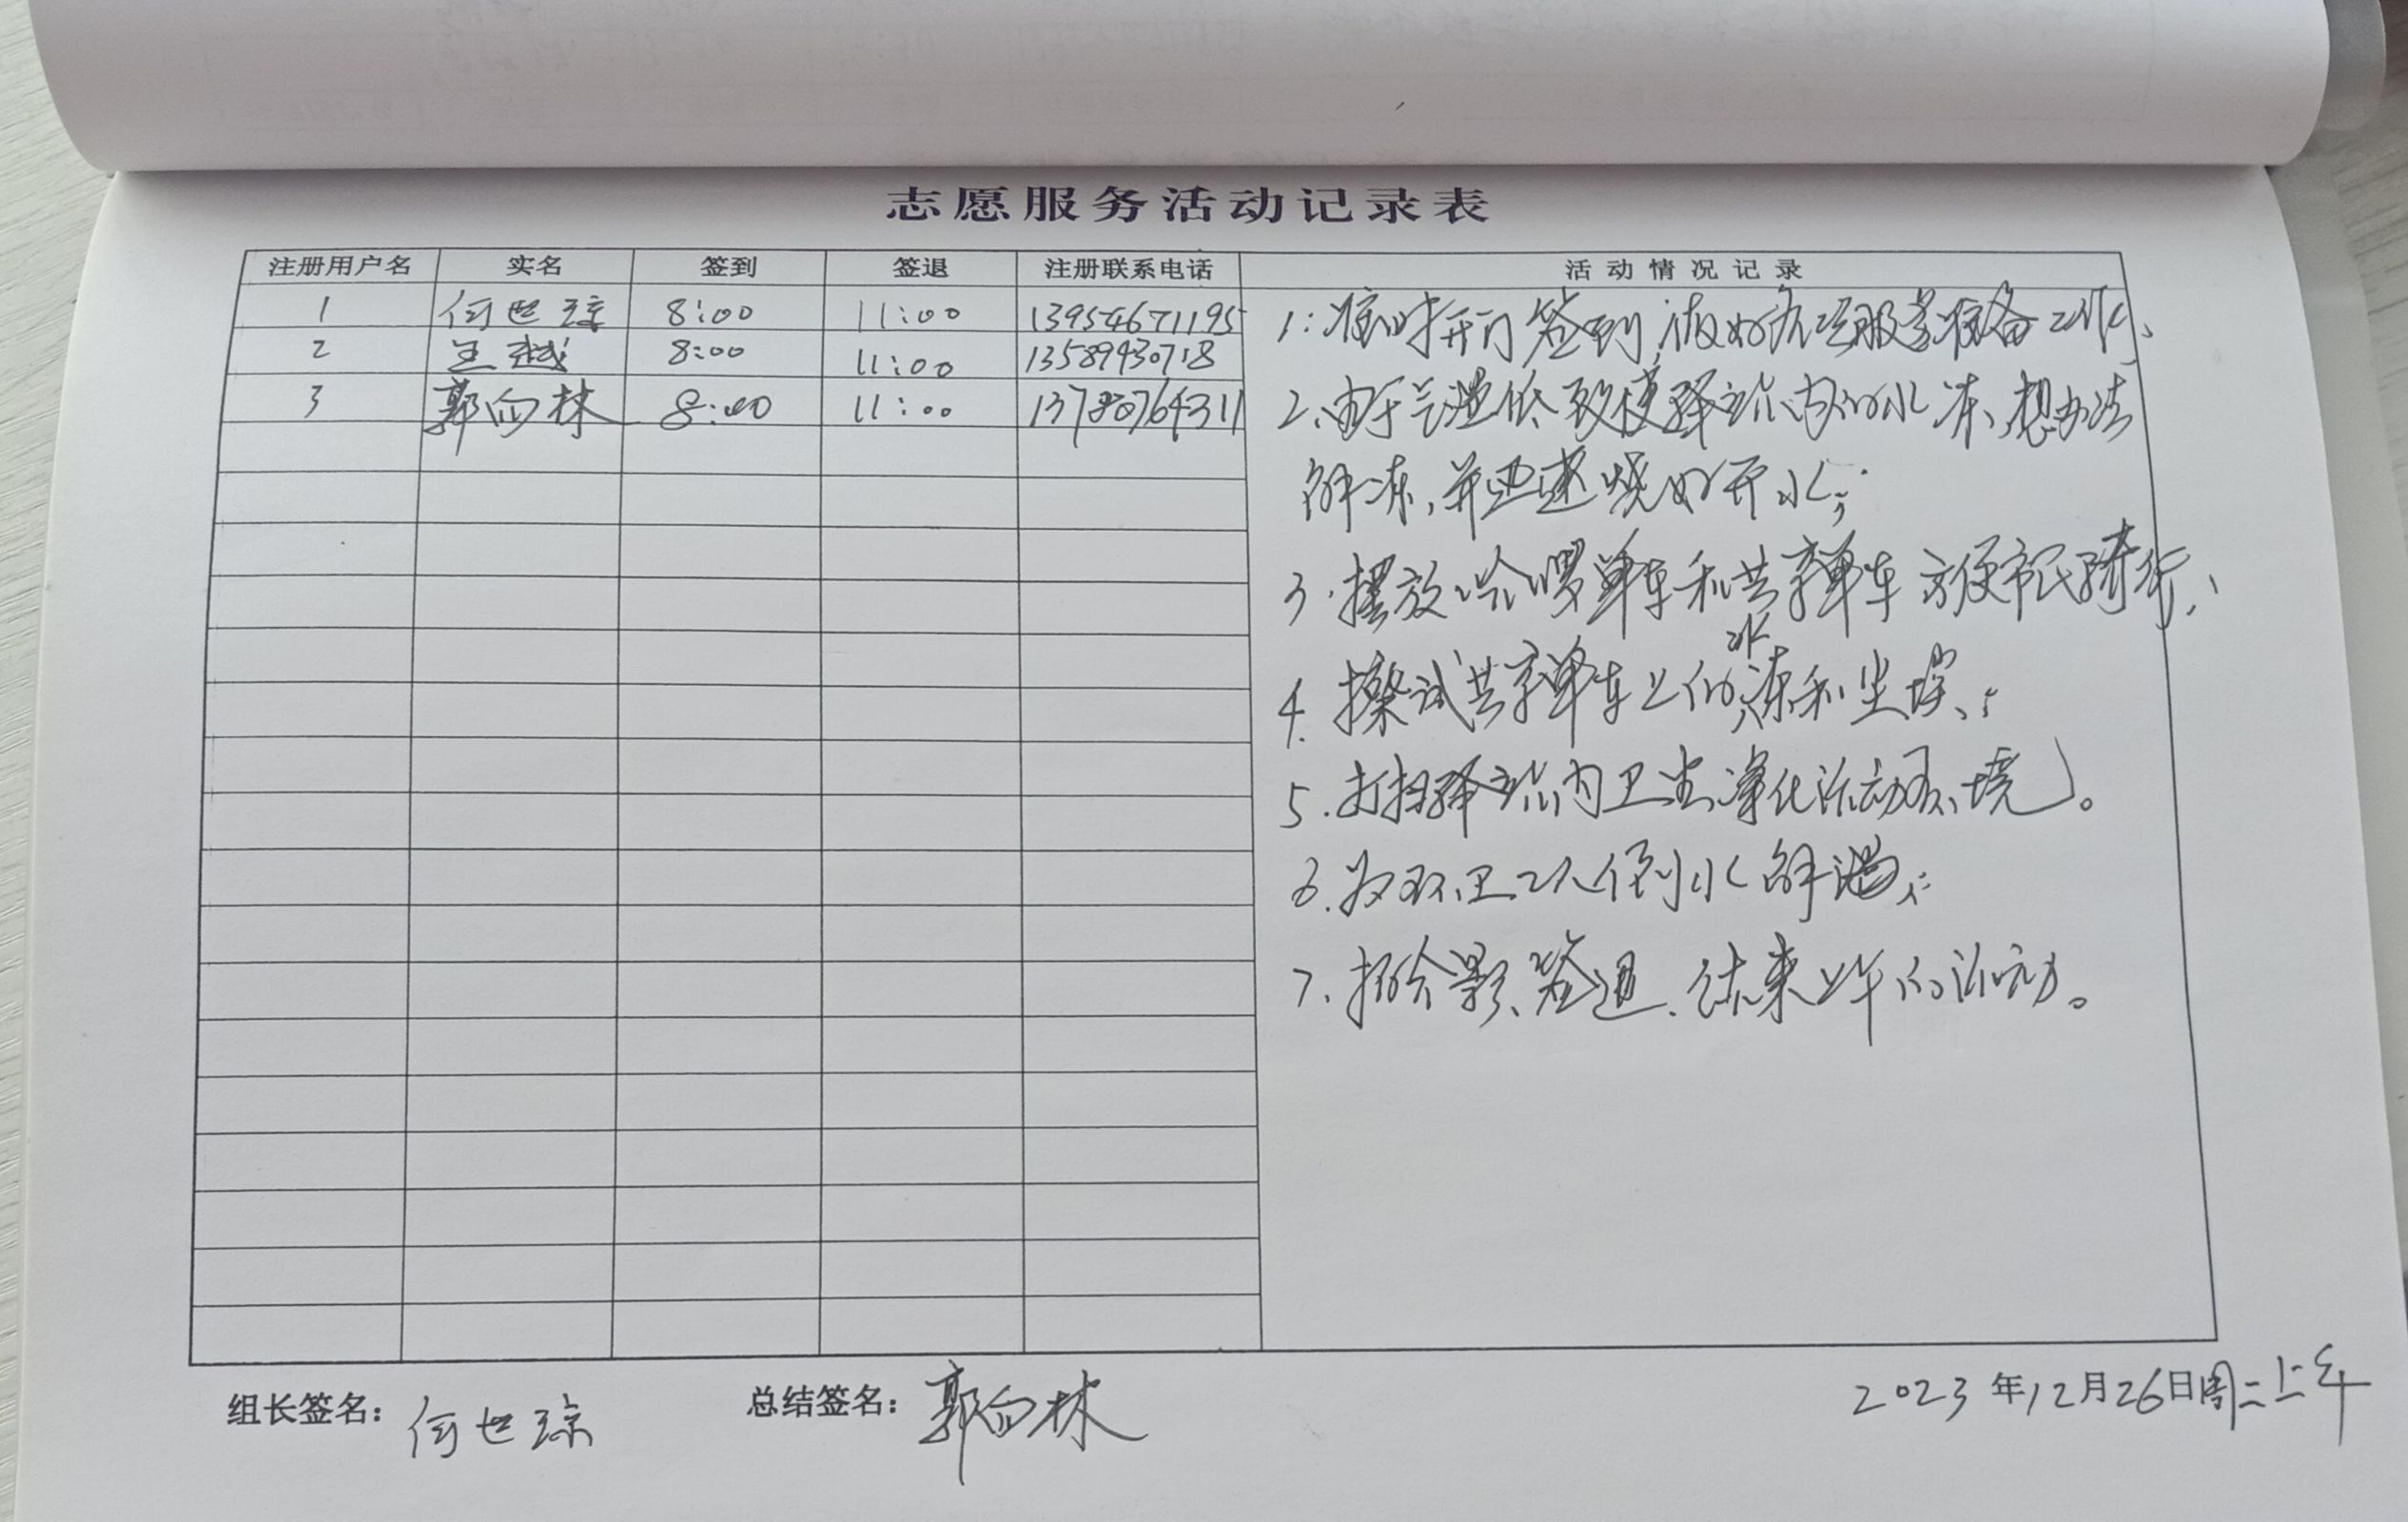 志愿服务活动记录表
注册用户名 实名 签到 签退 注册联系电话 活动情况记录
1 何世琼 8:00 11:00 13954671195
2 王越 8:00 11:00 13589430718
3 郭向林 8:00 11:00 13780764311
1:准时开门签到,做好各项服务准备工作、
2、由于气温低致使驿站内的水冻、想办法
解冻,并迅速烧好开水;
3.摆放哈啰单车和共享单车方便市民骑行、
4.擦试共享单车上的冰冻和尘埃、;
5.打扫驿站内卫生净化活动环境。
6.为环卫工人倒水解渴;
7、拍合影、签退.结束上午的活动。
组长签名:何世琼 总结签名:郭向林 2023年12月26日周二上午